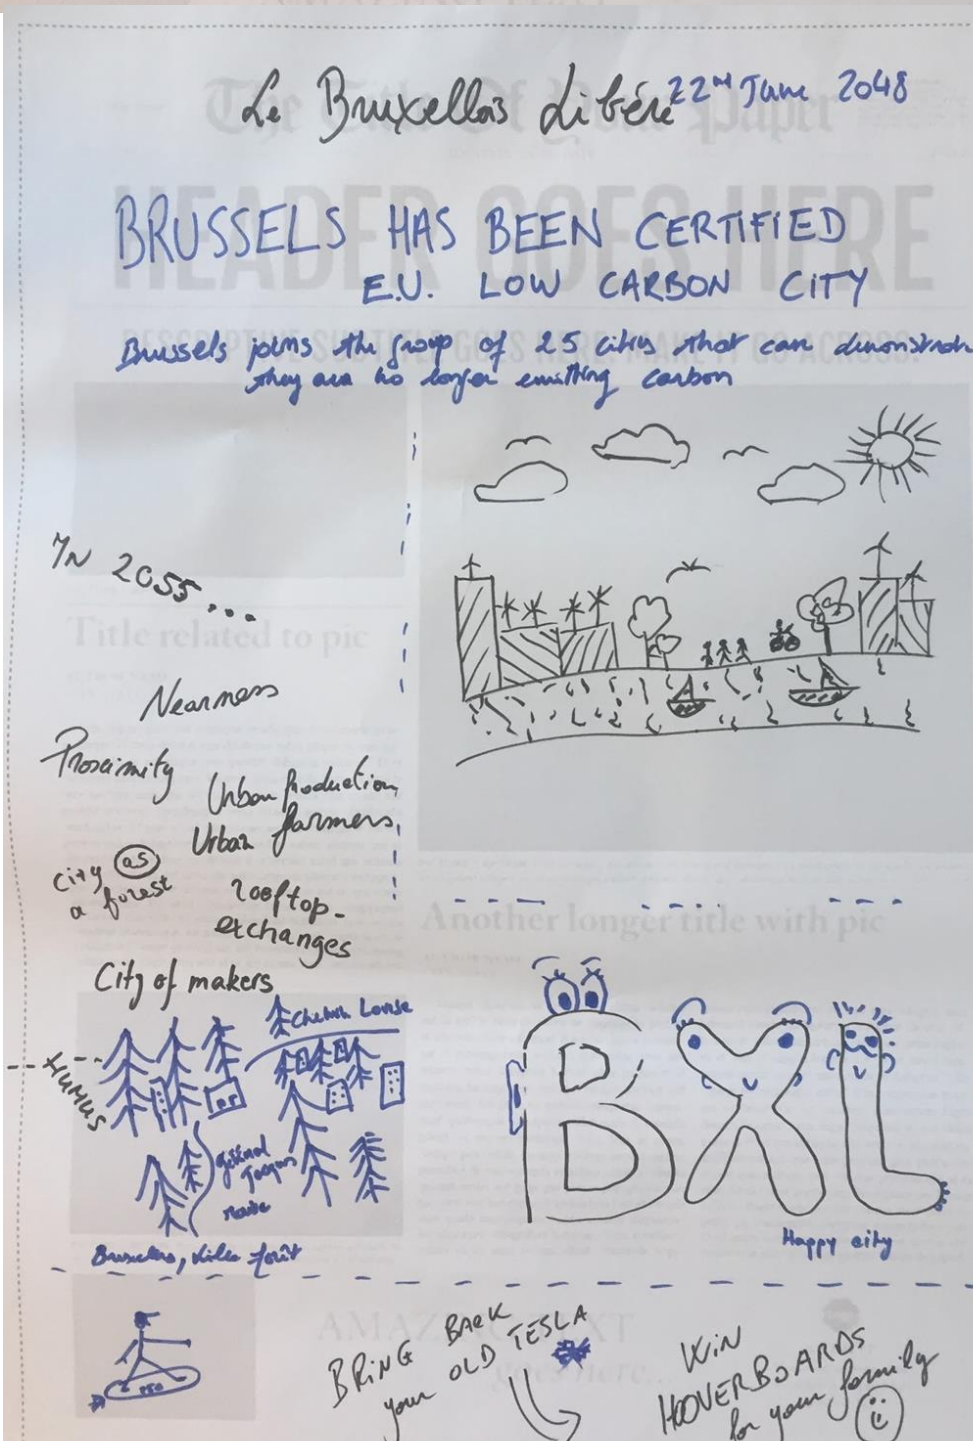 Le Bruxellois Libéré
22nd June 2048
The Title Of Your Paper
HEADER GOES HERE
BRUSSELS HAS BEEN CERTIFIED
E.U. LOW CARBON CITY
DESCRIPTIVE SUBTITLE GOES HERE. MAKE IT GO ACROSS.
Brussels joins the group of 25 cities that can demonstrate
they are no longer emitting carbon
IN 2055...
Title related to pic
Nearness
Proximity
Urban Production
Urban farmers
City as
a forest
rooftop-
exchanges
City of makers
Another longer title with pic
HUMUS
Louise
Bruxelles, ville forêt
BXL
Happy city
AMAZING TEXT
goes here..
BRING BACK
your OLD TESLA
WIN
HOOVERBOARDS
for your family